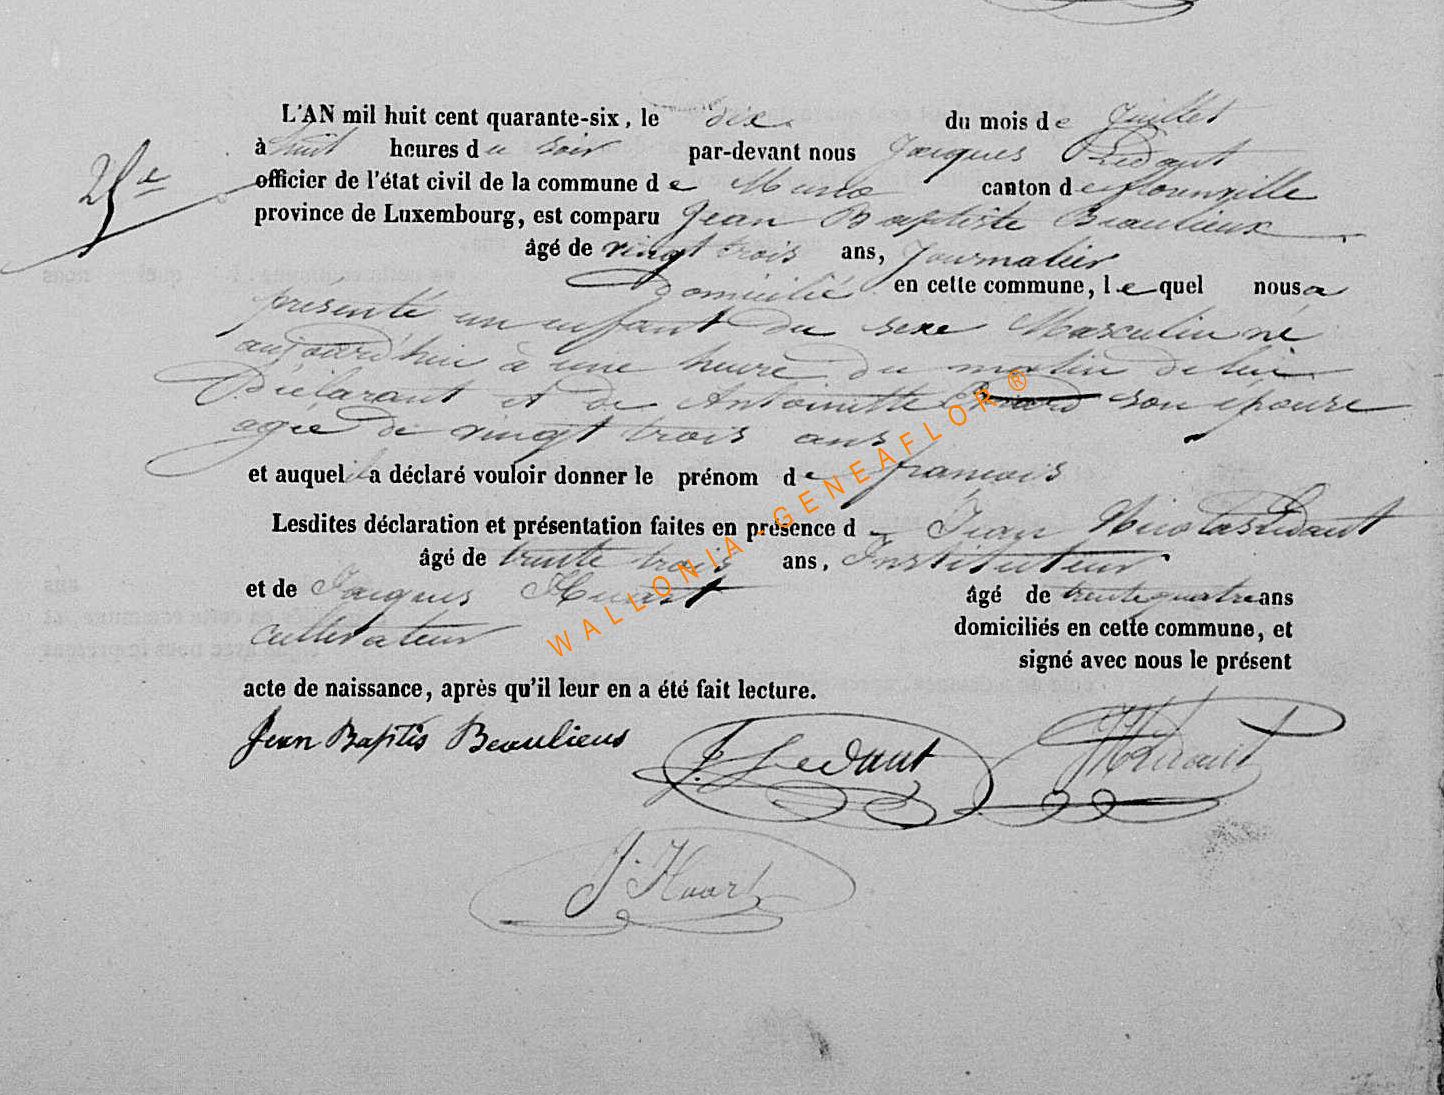 L'AN mil huit cent quarante-six, le dix du mois de Juillet
à huit heures du soir par-devant nous Jacques Ledant
officier de l'état civil de la commune de Muno canton de florenville
province de Luxembourg, est comparu Jean Baptiste Beaulieux
âgé de vingt trois ans, Journalier
Domicilié en cette commune, lequel nous a
présenté un enfant du sexe Masculin né
aujourd'hui à une heure du matin de lui
Déclarant et de Antoinette son épouse
agée de vingt trois ans
et auquel il a déclaré vouloir donner le prénom de francois
Lesdites déclaration et présentation faites en présence d Jean Nicolas Ledant
âgé de trente trois ans, Instituteur
et de Jacques Huart âgé de trente quatre ans
cultivateur domiciliés en cette commune, et
signé avec nous le présent
acte de naissance, après qu'il leur en a été fait lecture.
Jean Baptis Beaulieus J. Ledant JN Ledant
J. Huart
WALLONIA - GENEAFLOR ®